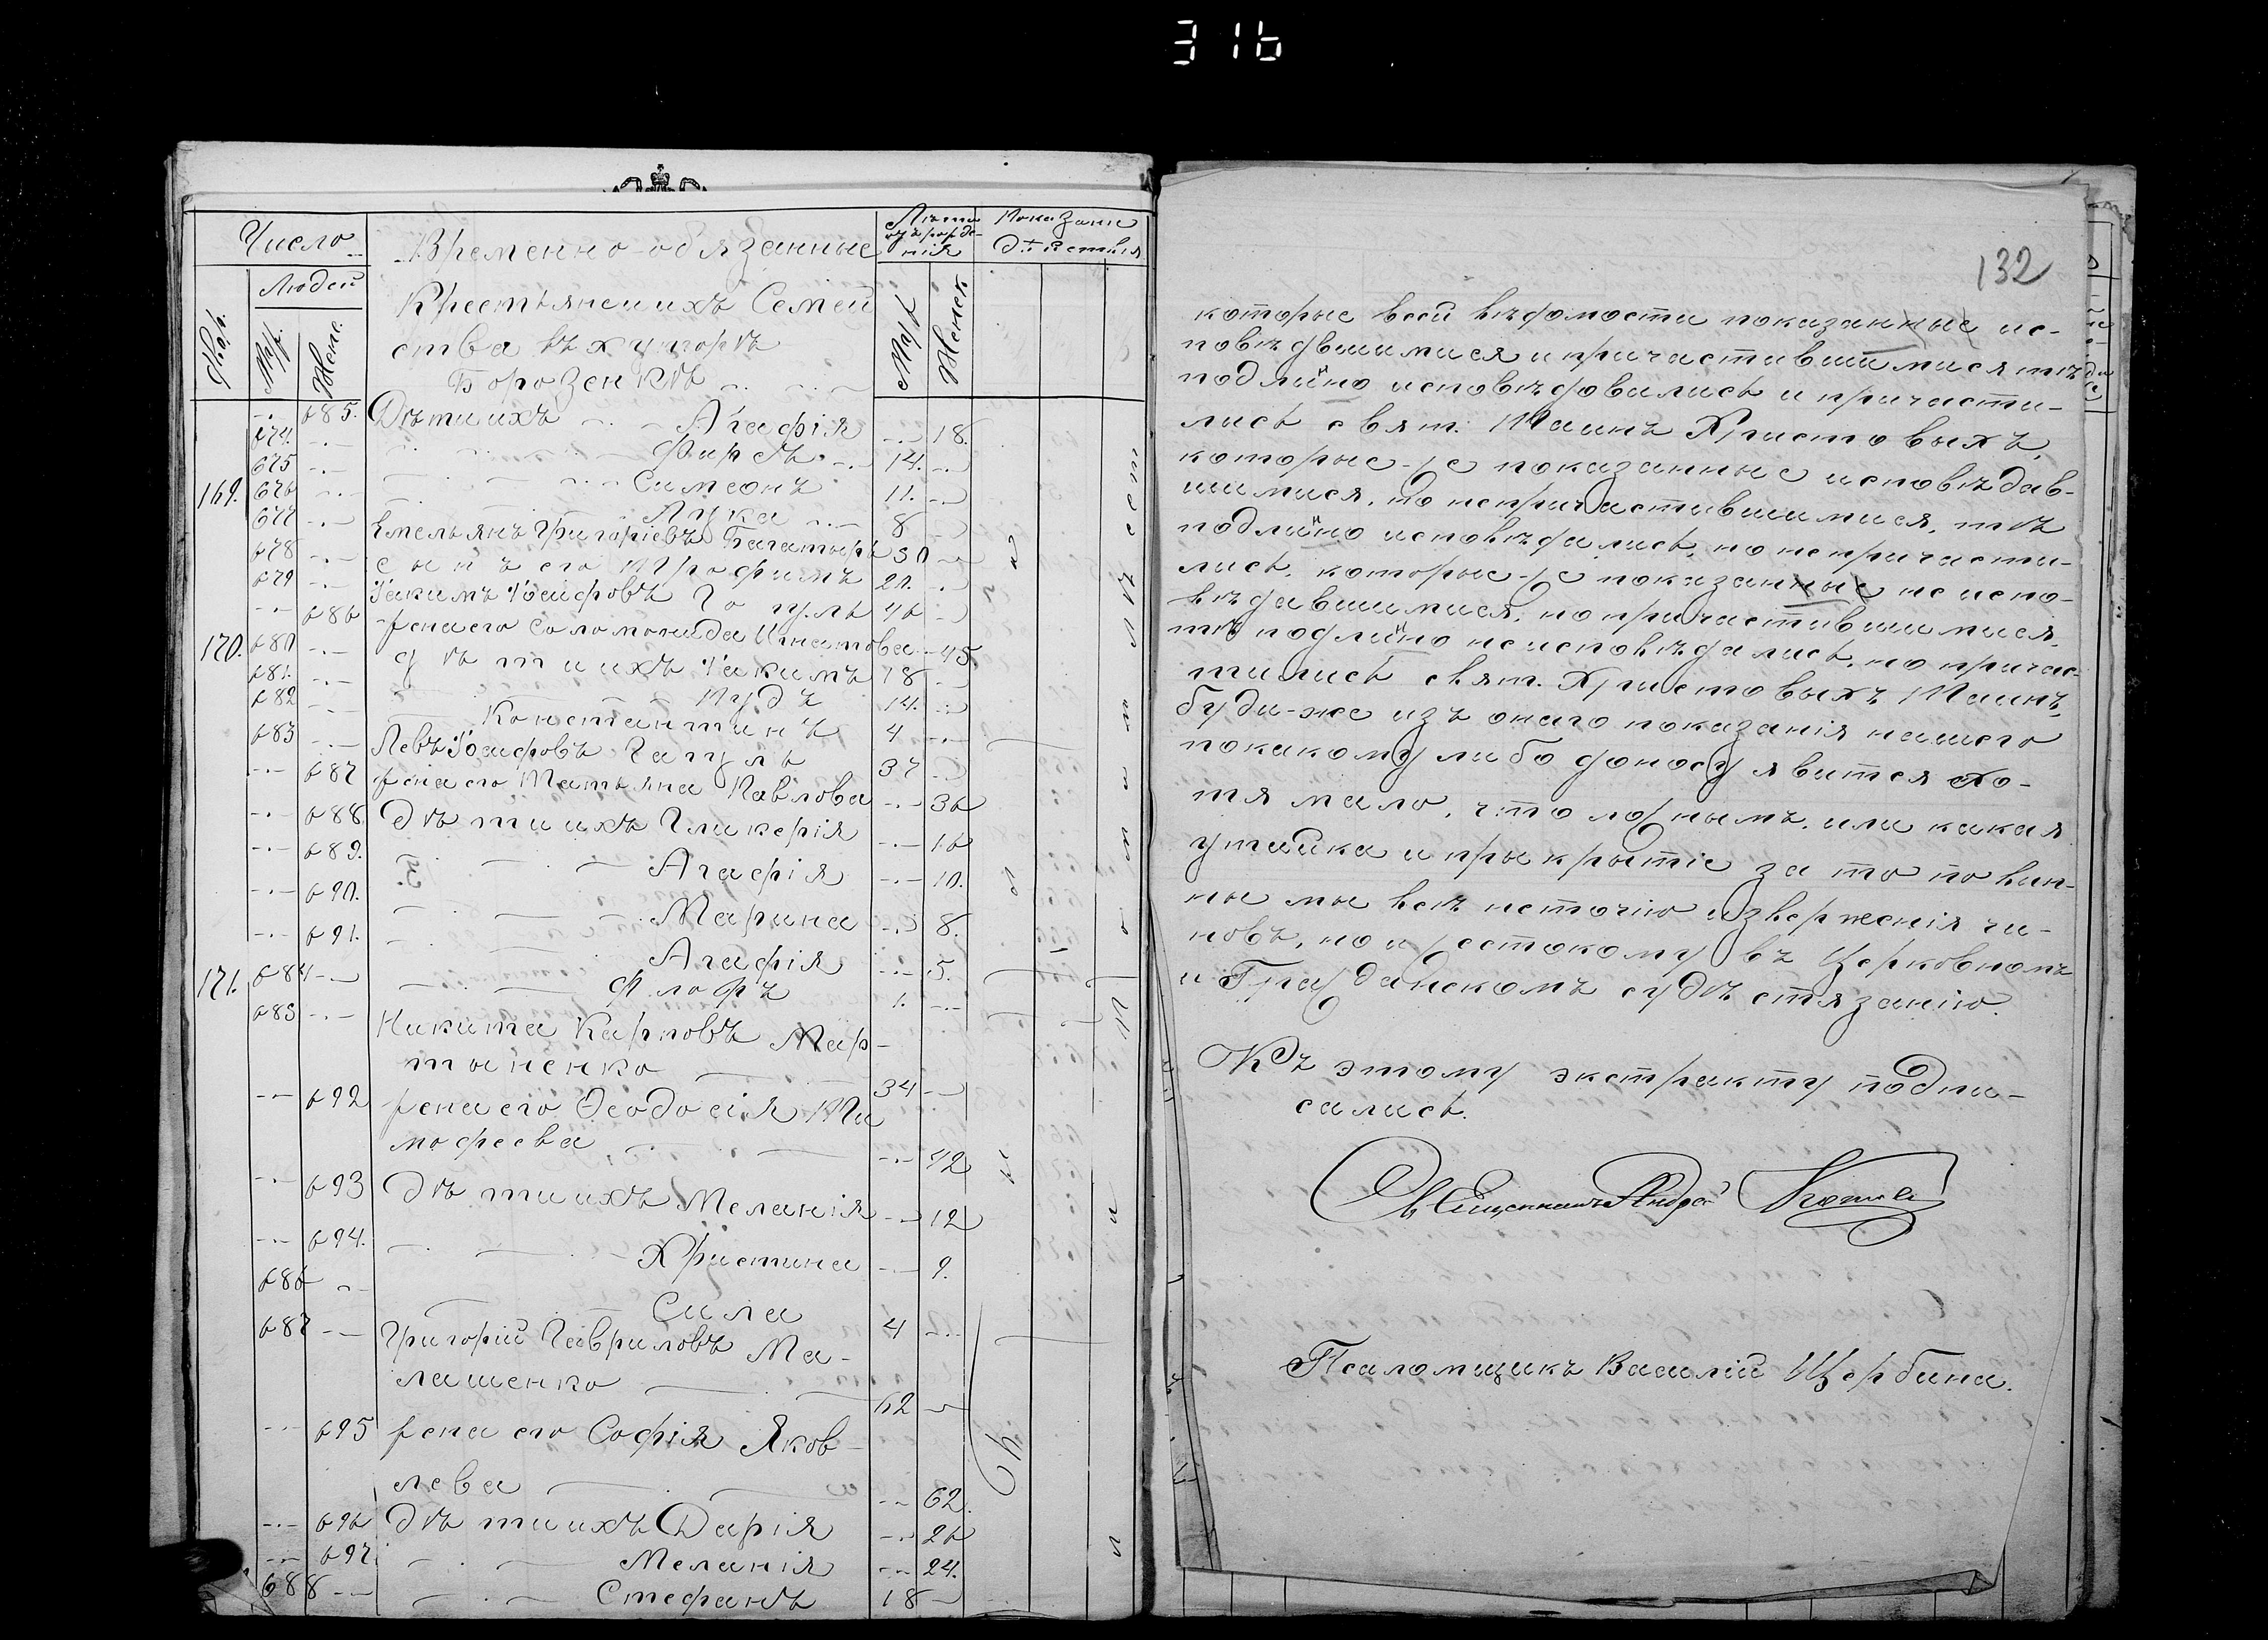 316
Число
Временно-обязанные
Лѣта отъ рожде-
нія
Показаніе
дѣйствія
Людей
Двор.
Муж.
Женс.
Крестьянскихъ Семей
ства въ хуторѣ
Бороденкѣ
Муж
Женск
685. Дѣти ихъ Агафія 18.
674. Фирсъ 14.
675 Симеонъ 11.
169. 676 Лука 8
677 Емельянъ Григоріевъ Багатырь 50
678 сынъ его Трофимъ 20.
679 Іакимъ Іосифовъ 46
686 жена его Соломонида Игнатова 45.
170. 680 дѣти ихъ Іакимъ 18
681. Иудъ 14.
682 Константинъ 4
683 Левъ Іосифовъ 37
687 жена его Татьяна Павлова 36
688 Дѣти ихъ Гликерія 16
689. Агафія 10.
690. Марина 8.
691. Агафія 5.
171. 684 Флоръ 1.
685 Никита Карповъ Мар-
тыненко 34
692 жена его Ѳеодосія Ти
мофеева 42
693 Дѣти ихъ Меланія 12
694. Христина 9.
686 Сила 4
687 Григорій Гавриловъ Ма-
лашенко 62
695 жена его Софія Яков-
лева 62.
696 Дѣти ихъ Дарія 26
697 Меланія 24.
688 Стефанъ 18
132
которые всей вѣдомости показанные ис-
повѣдвшимися и причастившимися тѣ
подлинно исповѣдовались и причасти-
лись свят. Таинъ Христовыхъ,
которые-же показанные исповѣдав-
шимися, но непричастившимися, тѣ
подлинно исповѣдались, но непричасти-
лись, которые-же показанные не испо-
вѣдавшимися, но причастившимися,
тѣ подлинно неисповѣдались, но причас-
тились свят. Христовыхъ Таинъ,
буди-же изъ онаго показанія нашего
покакому либо доносу явится хо-
тя мало, что ложнымъ, или какая
утайка и прыкрытіе за то повин-
ны мы не точію изверженія чи-
новъ, но и жестокому въ Церковномъ
и Гражданскомъ судѣ стязанію.
Къ этому экстракту подпи-
сались.
Священникъ Андрей
Псаломщикъ Василій Щербина.